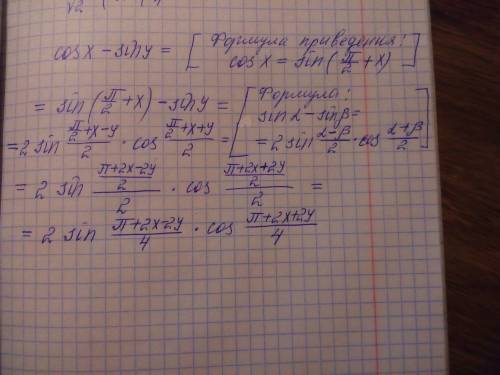 √2
cos x - sin y = [ Формула приведения: cos x = sin(π/2 + x) ]
= sin(π/2 + x) - sin y = [ Формула: sin α - sin β =
= 2 sin (π/2 + x - y)/2 · cos (π/2 + x + y)/2 = = 2 sin (α - β)/2 · cos (α + β)/2 ]
= 2 sin ((π + 2x - 2y)/2)/2 · cos ((π + 2x + 2y)/2)/2 =
= 2 sin (π + 2x - 2y)/4 · cos (π + 2x + 2y)/4